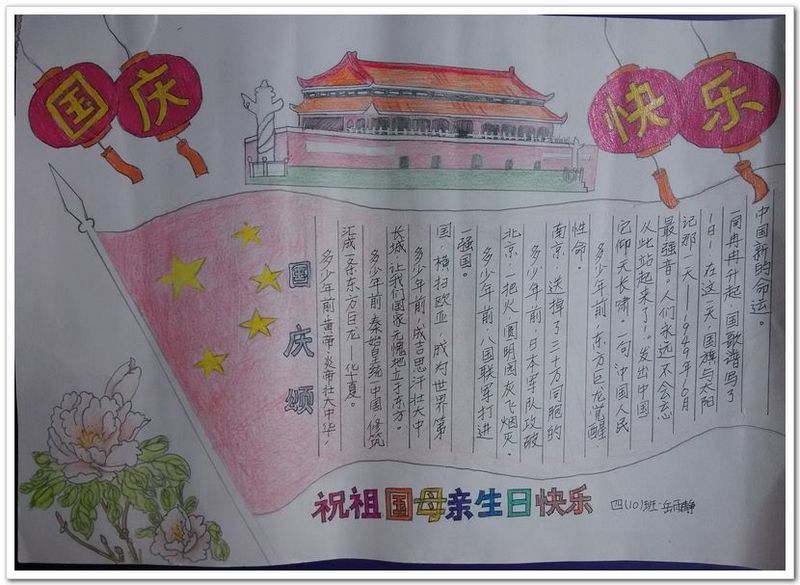 国庆
快乐
国庆颂
多少年前,黄帝,炎帝壮大中华,
汇成一条东方巨龙—华夏。
多少年前,秦始皇统一中国,修筑
长城,让我们国家无愧地立于东方。
多少年前,成吉思汗壮大中
国,横扫欧亚,成为世界第
一强国。
多少年前,八国联军打进
北京,一把火,圆明园灰飞烟灭。
多少年前,日本军队攻破
南京,送掉了三十万同胞的
性命。
多少年前,东方巨龙觉醒,
它仰天长啸一句“中国人民
从此站起来了!”。发出中国
最强音。人们永远不会忘
记那一天—1949年10月
1日,在这一天,国旗与太阳
一同冉冉升起,国歌谱写了
中国新的命运。
祝祖国母亲生日快乐
四(10)班:岳雨静